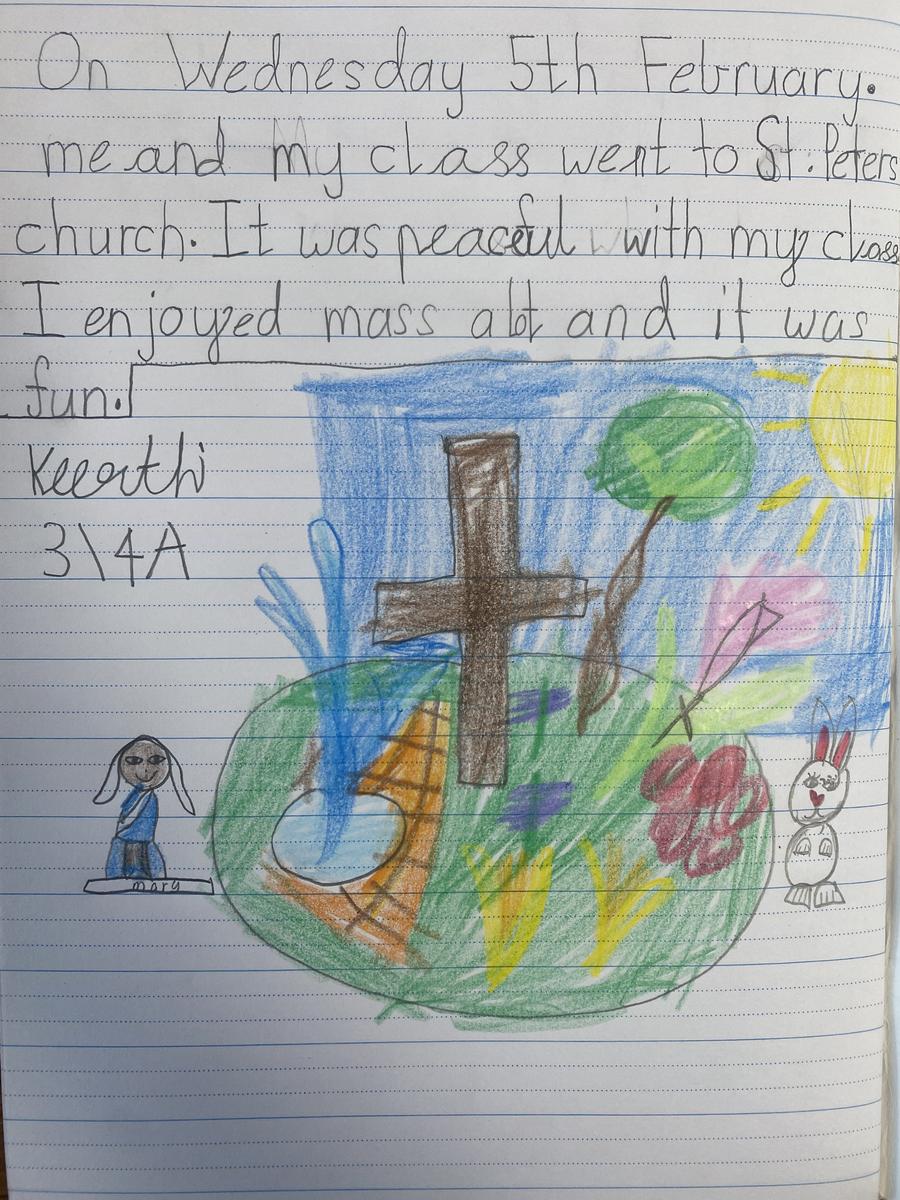 On Wednesday 5th February.
me and my class went to St. Peters
church. It was peaceful with my class
I enjoyed mass alot and it was
fun.
Keerthi
3\4A
mary